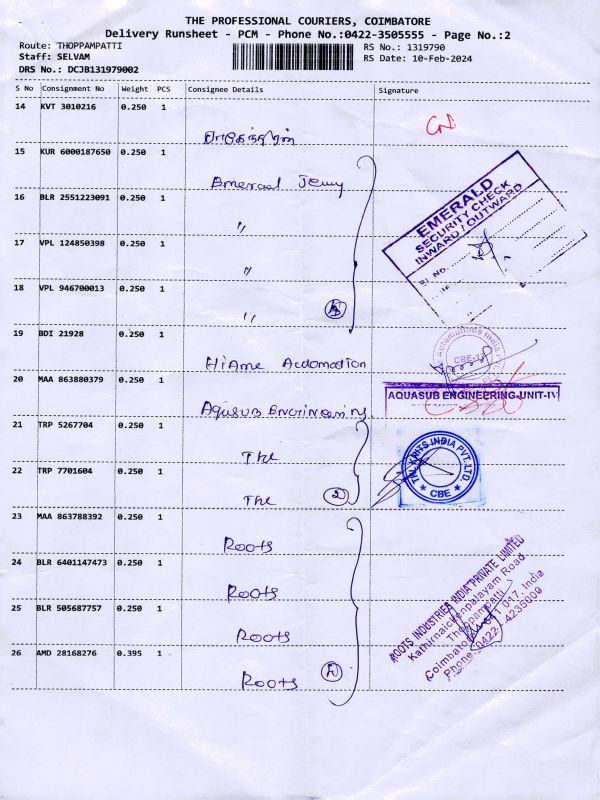 THE PROFESSIONAL COURIERS, COIMBATORE
Delivery Runsheet - PCM - Phone No.:0422-3505555 - Page No.:2
Route: THOPPAMPATTI
Staff: SELVAM
DRS No.: DCJB131979002
RS No.: 1319790
RS Date: 10-Feb-2024
S No Consignment No Weight PCS Consignee Details Signature
14 KVT 3010216 0.250 1
15 KUR 6000187650 0.250 1
16 BLR 2551223091 0.250 1
〃
17 VPL 124850398 0.250 1
〃
18 VPL 946700013 0.250 1
〃
EMERALD
SECURITY CHECK
INWARD / OUTWARD
SL NO.
19 BDI 21928 0.250 1
CBE-
20 MAA 863880379 0.250 1
Aquasub Engineering
AQUASUB ENGINEERING-UNIT-IV
21 TRP 5267704 0.250 1
22 TRP 7701604 0.250 1
2
KNITS INDIA PVT.LTD.
CBE
23 MAA 863788392 0.250 1
Roots
24 BLR 6401147473 0.250 1
Roots
25 BLR 505687757 0.250 1
Roots
26 AMD 28168276 0.395 1
Roots
ROOTS INDUSTRIES INDIA PRIVATE LIMITED
Kathirnaickenpalayam Road
Thoppampatti
Coimbatore 641 017, India
Phone: 0422 - 4235000